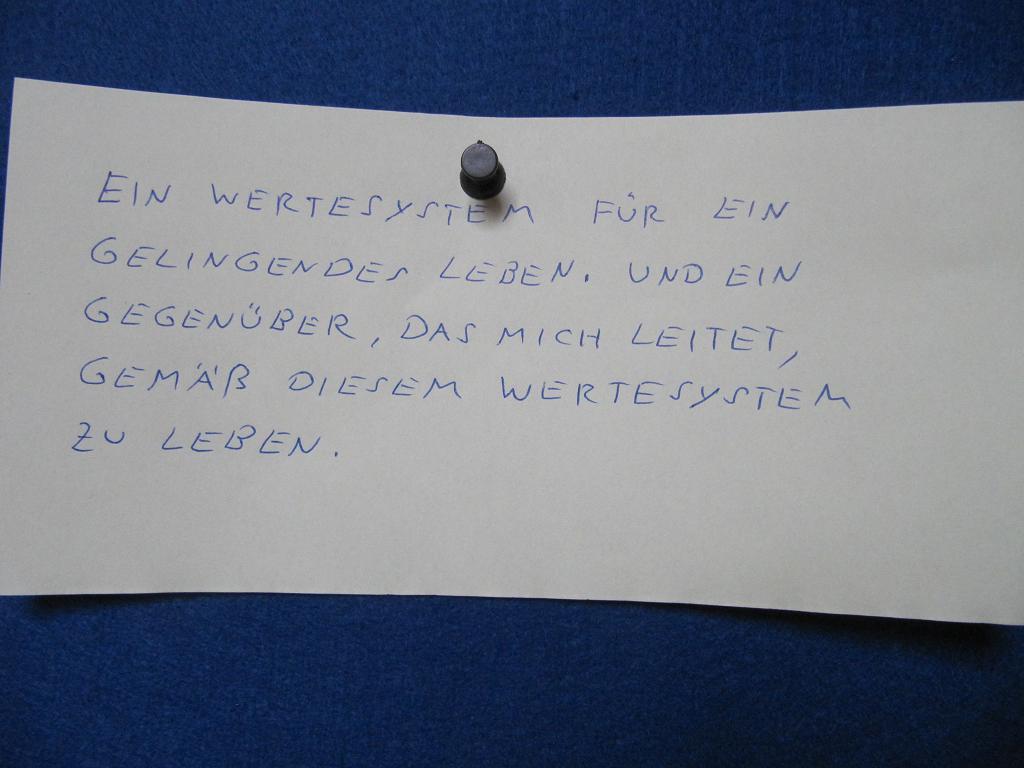 EIN WERTESYSTEM FÜR EIN
GELINGENDES LEBEN. UND EIN
GEGENÜBER, DAS MICH LEITET,
GEMÄß DIESEM WERTESYSTEM
ZU LEBEN.